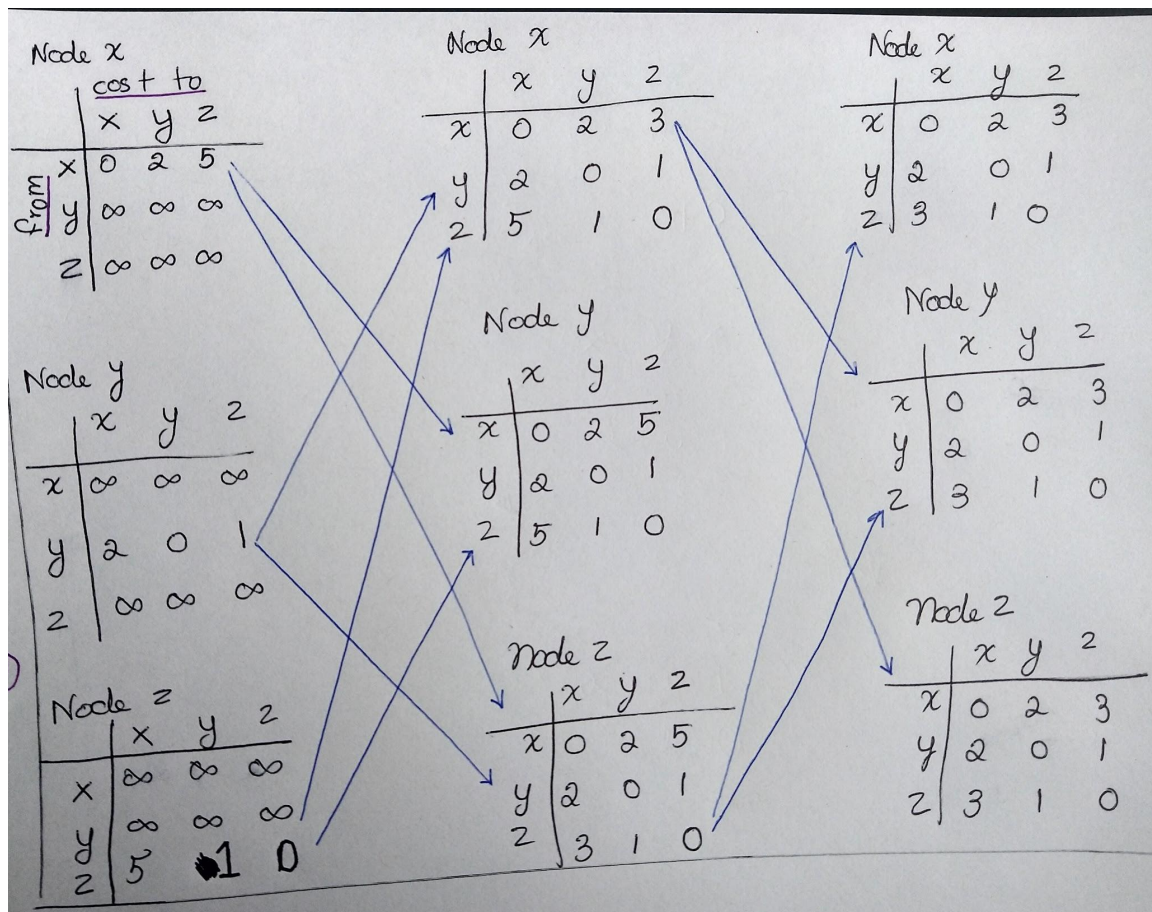 Node x
cost to
x y z
from
x 0 2 5
y ∞ ∞ ∞
z ∞ ∞ ∞
Node y
x y z
x ∞ ∞ ∞
y 2 0 1
z ∞ ∞ ∞
Node z
x y z
x ∞ ∞ ∞
y ∞ ∞ ∞
z 5 1 0
Node x
x y z
x 0 2 3
y 2 0 1
z 5 1 0
Node y
x y z
x 0 2 5
y 2 0 1
z 5 1 0
Node z
x y z
x 0 2 5
y 2 0 1
z 3 1 0
Node x
x y z
x 0 2 3
y 2 0 1
z 3 1 0
Node y
x y z
x 0 2 3
y 2 0 1
z 3 1 0
Node z
x y z
x 0 2 3
y 2 0 1
z 3 1 0